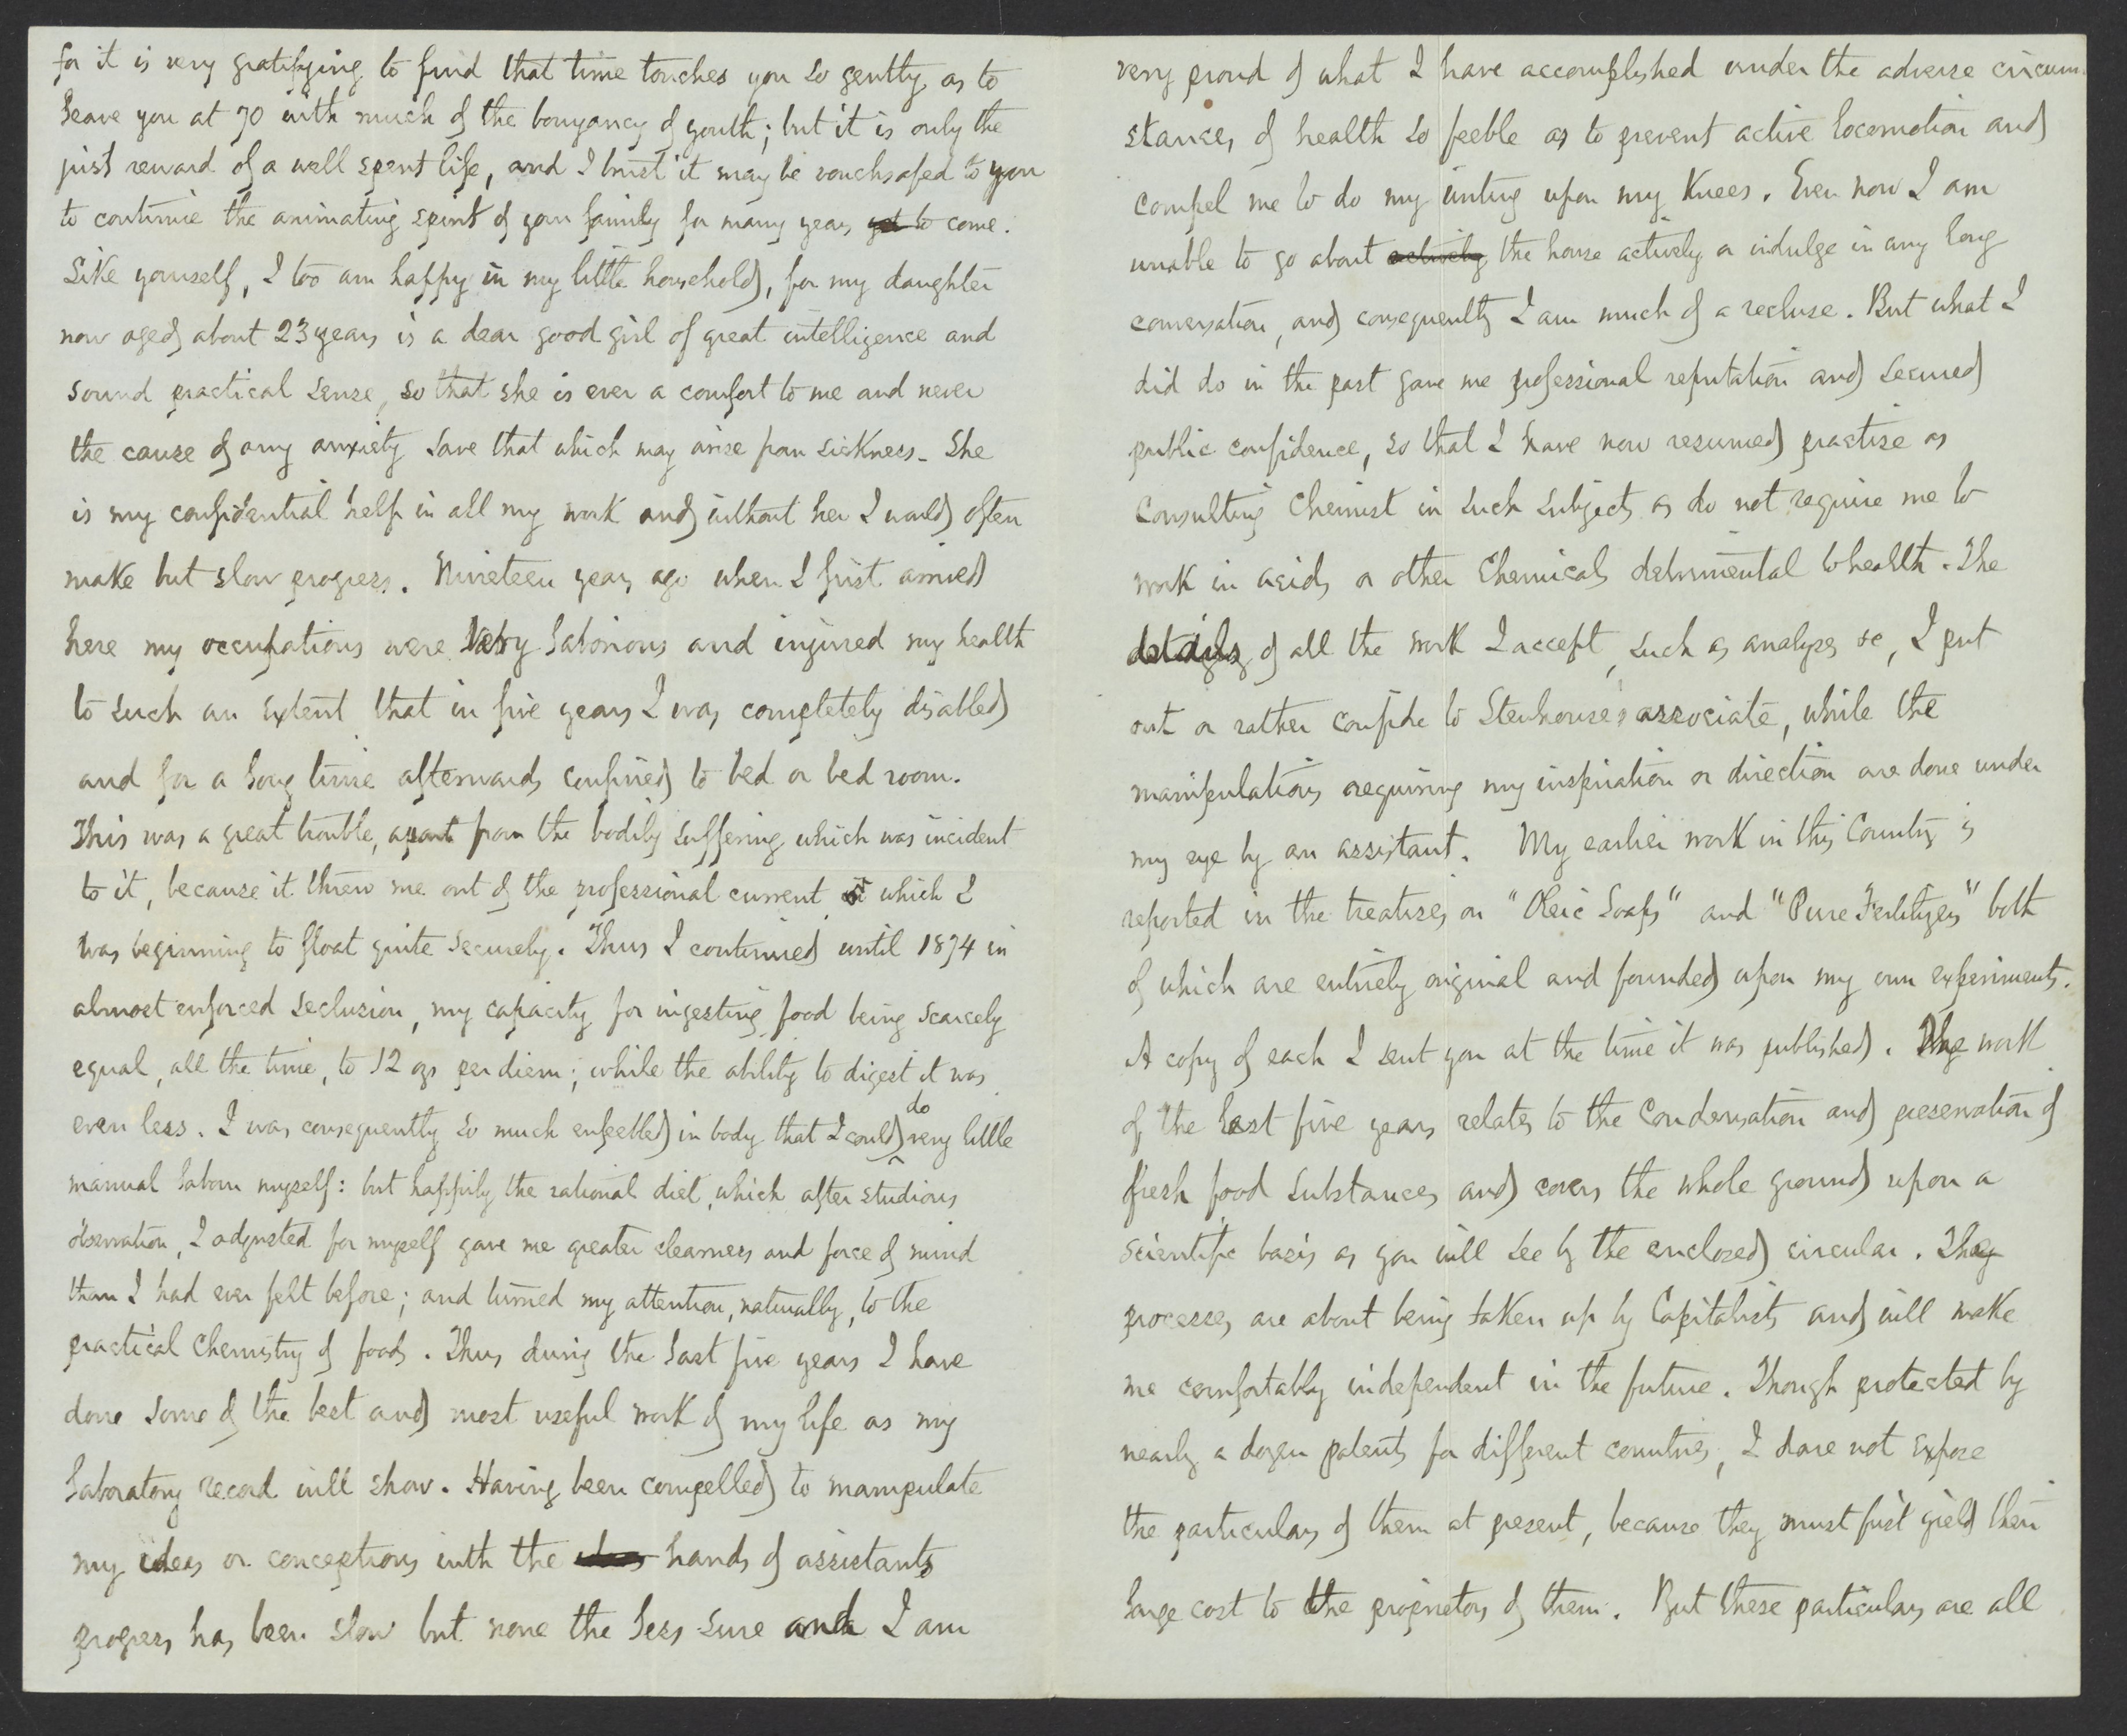 for it is very gratifying to find that time touches you so gently as to
leave you at 70 with much of the bouyancy of youth; but it is only the
just reward of a well spent life, and I trust it may be vouchsafed to you
to continue the animating spirit of your family for many years yet to come.
Like yourself, I too am happy in my little household, for my daughter
now aged about 23 years is a dear good girl of great intelligence and
sound practical sense, so that she is ever a comfort to me and never
the cause of any anxiety save that which may arise from sickness. She
is my confidential help in all my work and without her I would often
make but slow progress. Nineteen years ago when I first arrived
here my occupations were very laborious and injured my health
to such an extent that in five years I was completely disabled
and for a long time afterwards confined to bed or bed room.
This was a great trouble, apart from the bodily suffering which was incident
to it, because it threw me out of the professional current in which I
was beginning to float quite securely. Thus I continued until 1874 in
almost enforced seclusion, my capacity for ingesting food being scarcely
equal, all the time, to 12 ozs per diem; while the ability to digest it was
even less. I was consequently so much enfeebled in body that I could do very little
manual labour myself: but happily the rational diet, which after studious
observation, I adjusted for myself gave me greater clearness and force of mind
than I had ever felt before; and turned my attention, naturally, to the
practical Chemistry of foods. Thus during the last five years I have
done some of the best and most useful work of my life as my
laboratory record will show. Having been compelled to manipulate
my ideas or conceptions with the hands of assistants
progress has been slow but none the less sure and I am
very proud of what I have accomplished under the adverse circum-
stances of health so feeble as to prevent active locomotion and
compel me to do my writing upon my Knees. Even now I am
unable to go about actively the house actively or indulge in any long
conversation, and consequently I am much of a recluse. But what I
did do in the past gave me professional reputation and secured
public confidence, so that I have now resumed practise as
Consulting Chemist in such subjects as do not require me to
work in acids or other Chemicals detrimental to health. The
details of all the work I accept, such as analyses &c, I put
out or rather confide to Stenhouse's associate, while the
manipulations requiring my inspiration or direction are done under
my eye by an assistant. My earlier work in this Country is
reported in the treatises on "Oleic Soaps" and "Pure Fertilizers" both
of which are entirely original and founded upon my own experiments.
A copy of each I sent you at the time it was published. The work
of the last five years relates to the Condensation and preservation of
fresh food substances and covers the whole ground upon a
scientific basis as you will see by the enclosed circular. The
processes are about being taken up by Capitalists and will make
me comfortably independent in the future. Though protected by
nearly a dozen patents for different countries, I dare not expose
the particulars of them at present, because they must first yield their
large cost to the proprietors of them. But these particulars are all